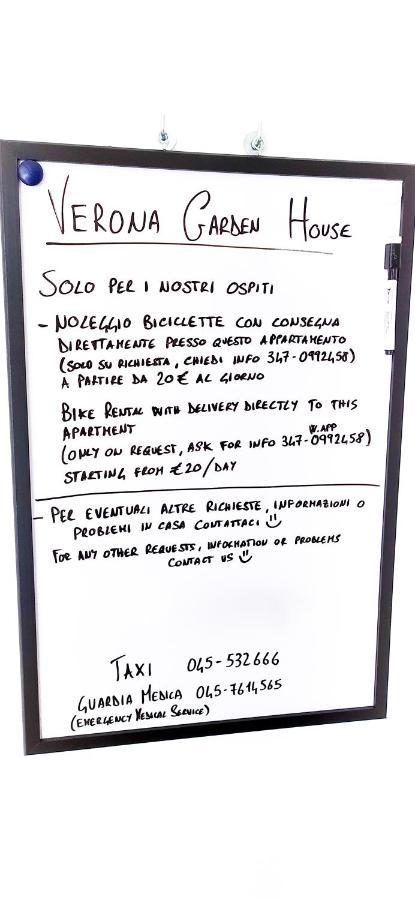 VERONA GARDEN HOUSE
SOLO PER I NOSTRI OSPITI
- NOLEGGIO BICICLETTE CON CONSEGNA
DIRETTAMENTE PRESSO QUESTO APPARTAMENTO
(SOLO SU RICHIESTA, CHIEDI INFO 347-0992458)
A PARTIRE DA 20€ AL GIORNO
BIKE RENTAL WITH DELIVERY DIRECTLY TO THIS
APARTMENT
W.APP
(ONLY ON REQUEST, ASK FOR INFO 347-0992458)
STARTING FROM €20/DAY
- PER EVENTUALI ALTRE RICHIESTE, INFORMAZIONI O
PROBLEMI IN CASA CONTATTACI
FOR ANY OTHER REQUESTS, INFORMATION OR PROBLEMS
CONTACT US
TAXI 045-532666
GUARDIA MEDICA 045-7614565
(EMERGENCY MEDICAL SERVICE)